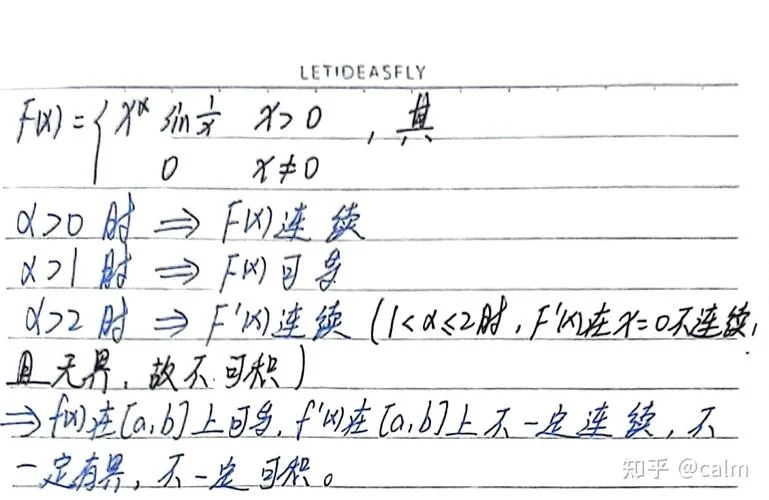 LETIDEASFLY
F(x)={ x^α sin 1/x x>0 , 其
0 x≠0
α>0 时 ⇒ F(x)连续
α>1 时 ⇒ F(x)可导
α>2 时 ⇒ F'(x)连续 (1<α≤2时, F'(x)在x=0不连续,
且无界, 故不可积)
⇒ f(x)在[a,b]上可导, f'(x)在[a,b]上不一定连续, 不
一定有界, 不一定可积。
知乎 @calm